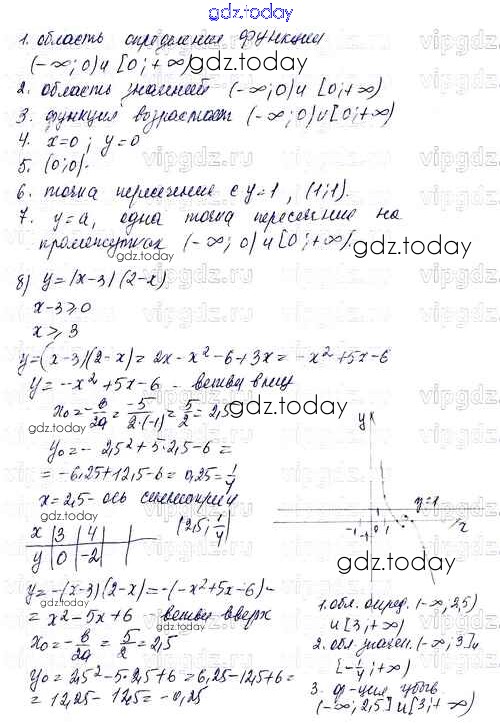 gdz.today
1. область определения функции
(-∞; 0) и [0; +∞)
2. область значений (-∞; 0) и [0; +∞)
3. функция возрастает (-∞; 0) и [0; +∞)
4. x=0; y=0
5. (0; 0).
6. точка пересечение с y=1, (1; 1).
7. y=a, одна точка пересечение на
промежутках (-∞; 0) и [0; +∞).
gdz.today
8) y=|x-3|(2-x)
x-3≥0
x≥3
y=(x-3)(2-x)=2x-x²-6+3x=-x²+5x-6
y=-x²+5x-6 - ветви вниз
x₀=-в/2a=-5/2·(-1)=5/2=2,5
gdz.today
y₀=-2,5²+5·2,5-6=
=-6,25+12,5-6=0,25=1/4
x=2,5- ось симметрии
(2,5; 1/4)
x | 3 | 4
y | 0 | -2
y
y=1
-1 0 1
x
gdz.today
y=-(x-3)(2-x)=-(-x²+5x-6)=
=x²-5x+6 - ветви вверх
x₀=-в/2a=5/2=2,5
y₀=2,5²-5·2,5+6=6,25-12,5+6=
=12,25-12,5=-0,25
1. обл. опред. (-∞; 2,5)
и [3; +∞)
2. обл. значен. (-∞; 3] и
[-1/4; +∞)
3. ф-ция убыв.
(-∞; 2,5] и [3; +∞)
gdz.today